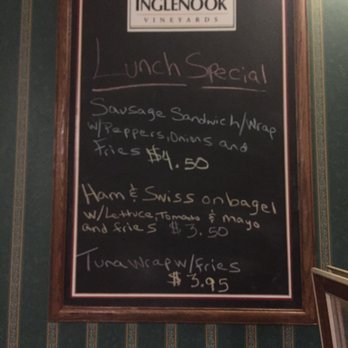 INGLENOOK
VINEYARDS
Lunch Special
Sausage Sandwich/Wrap
w/Peppers, Onions and
Fries $4.50
Ham & Swiss on bagel
w/Lettuce, Tomato & mayo
and fries $3.50
Tuna Wrap w/Fries
$3.95